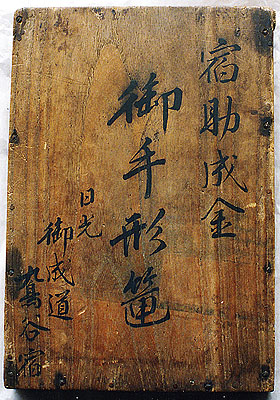 宿助成金
御手形
日光
御成道
鳩谷宿